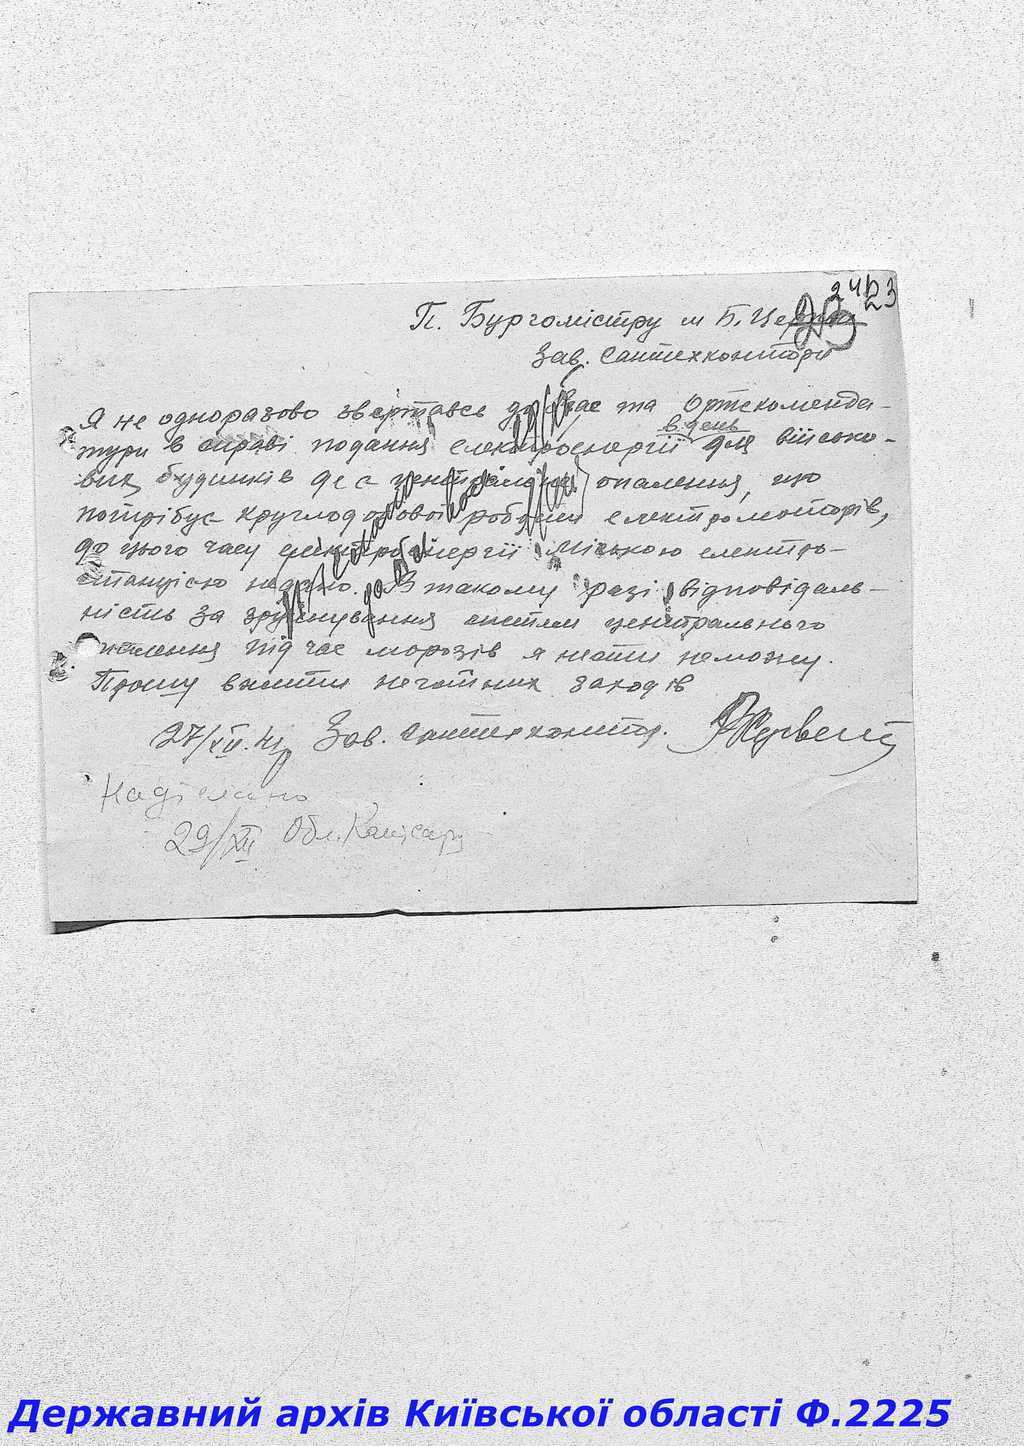 24 23
23
П. Бургомістру м Б. Церкви
Зав. Сантехконтори
Я не одноразово звертавсь до Вас та Ортскоменда-
тури в справі подання електроенергії в день для військо-
вих будинків де є центральне опалення, що
потрібує круглодобової роботи електромоторів,
до цього часу електроенергії міською електро-
станцією не дано. В такому разі відповідаль-
ність за зруйнування систем центрального
опалення під час морозів я нести неможу.
Прошу вжити негайних заходів
27/XII.41р Зав. Сантехконтор.
Надіслано
29/XII Обл. Комісару
Державний архів Київської області Ф.2225